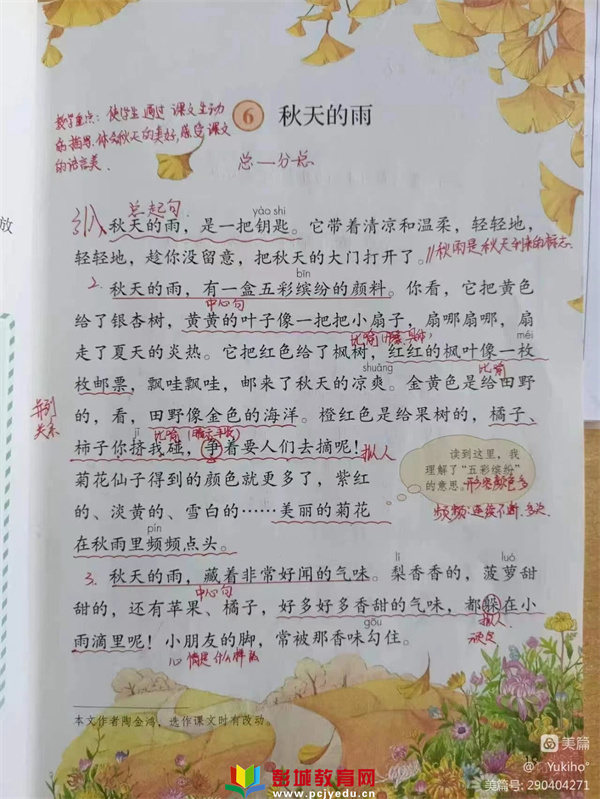 教学重点：使学生通过课文生动
的描写，体会秋天的美好，感受课文
的语言美。
6 秋天的雨
总—分总
总起句
yào shi
引入 秋天的雨，是一把钥匙。它带着清凉和温柔，轻轻地，
轻轻地，趁你没留意，把秋天的大门打开了。//秋雨是秋天到来的标志
bīn
2. 秋天的雨，有一盒五彩缤纷的颜料。你看，它把黄色
中心句
给了银杏树，黄黄的叶子像一把把小扇子，扇哪扇哪，扇
比喻
méi
走了夏天的炎热。它把红色给了枫树，红红的枫叶像一枚
shuāng 比喻
枚邮票，飘哇飘哇，邮来了秋天的凉爽。金黄色是给田野
并列
关系
的，看，田野像金色的海洋。橙红色是给果树的，橘子、
jǐ 比喻
柿子你挤我碰，争着要人们去摘呢！拟人
菊花仙子得到的颜色就更多了，紫红
的、淡黄的、雪白的……美丽的菊花
pín
在秋雨里频频点头。
读到这里，我
理解了“五彩缤纷”
的意思。形容颜色多
频频：连续不断、多次
3. 秋天的雨，藏着非常好闻的气味。梨香香的，菠萝甜
lí luó
中心句
甜的，还有苹果、橘子，好多好多香甜的气味，都躲在小
gōu 拟人
雨滴里呢！小朋友的脚，常被那香味勾住。
本文作者陶金鸿，选作课文时有改动。
放
美篇
@ Yukiho°
美篇号: 290404271
彭城教育网
www.pcjyedu.cn